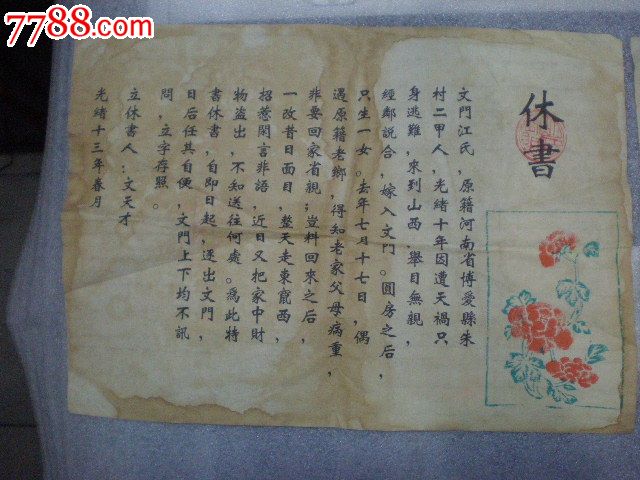 7788.com
休書
文門江氏，原籍河南省博愛縣朱
村二甲人，光緒十年因遭天禍只
身逃難，來到山西，舉目無親，
經鄰說合，嫁入文門。圓房之后，
只生一女。去年七月十七日，偶
遇原籍老鄉，得知老家父母病重，
非要回家省親；豈料回來之后，
一改昔日面目，整天走東竄西，
招惹閑言非語，近日又把家中財
物盜出，不知送往何處。為此特
書休書，自即日起，逐出文門，
日后任其自便，文門上下均不訊
問，立字存照。
立休書人：文天才
光緒十三年春月